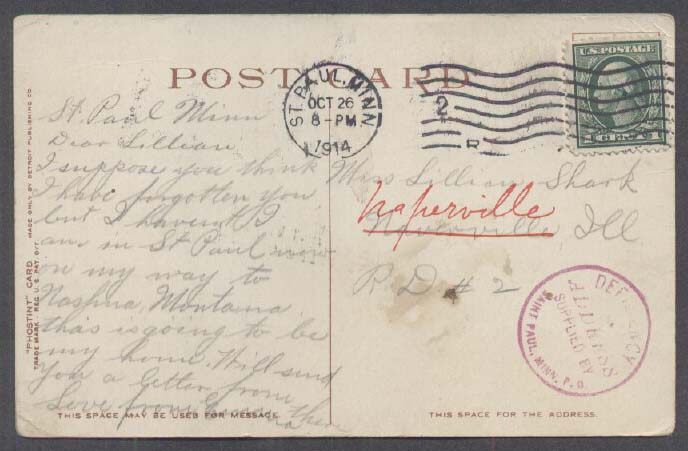 POST CARD
ST. PAUL, MINN.
OCT 26
8-PM
1914
2
R
U.S. POSTAGE
St. Paul Minn
Dear Lillian
I suppose you think
I have forgotten you
but I havent I
am in St Paul now
on my way to
Montana
this is going to be
my home. Will send
you a letter from there
Love from
Miss Lillian Shark
Naperville
Ill
R D # 2
DEFICIENCY
ADDRESS
SUPPLIED BY
SAINT PAUL, MINN. P. O.
"PHOSTINT" CARD MADE ONLY BY DETROIT PUBLISHING CO.
TRADE MARK REG. U.S. PAT. OFF.
THIS SPACE MAY BE USED FOR MESSAGE.
THIS SPACE FOR THE ADDRESS.